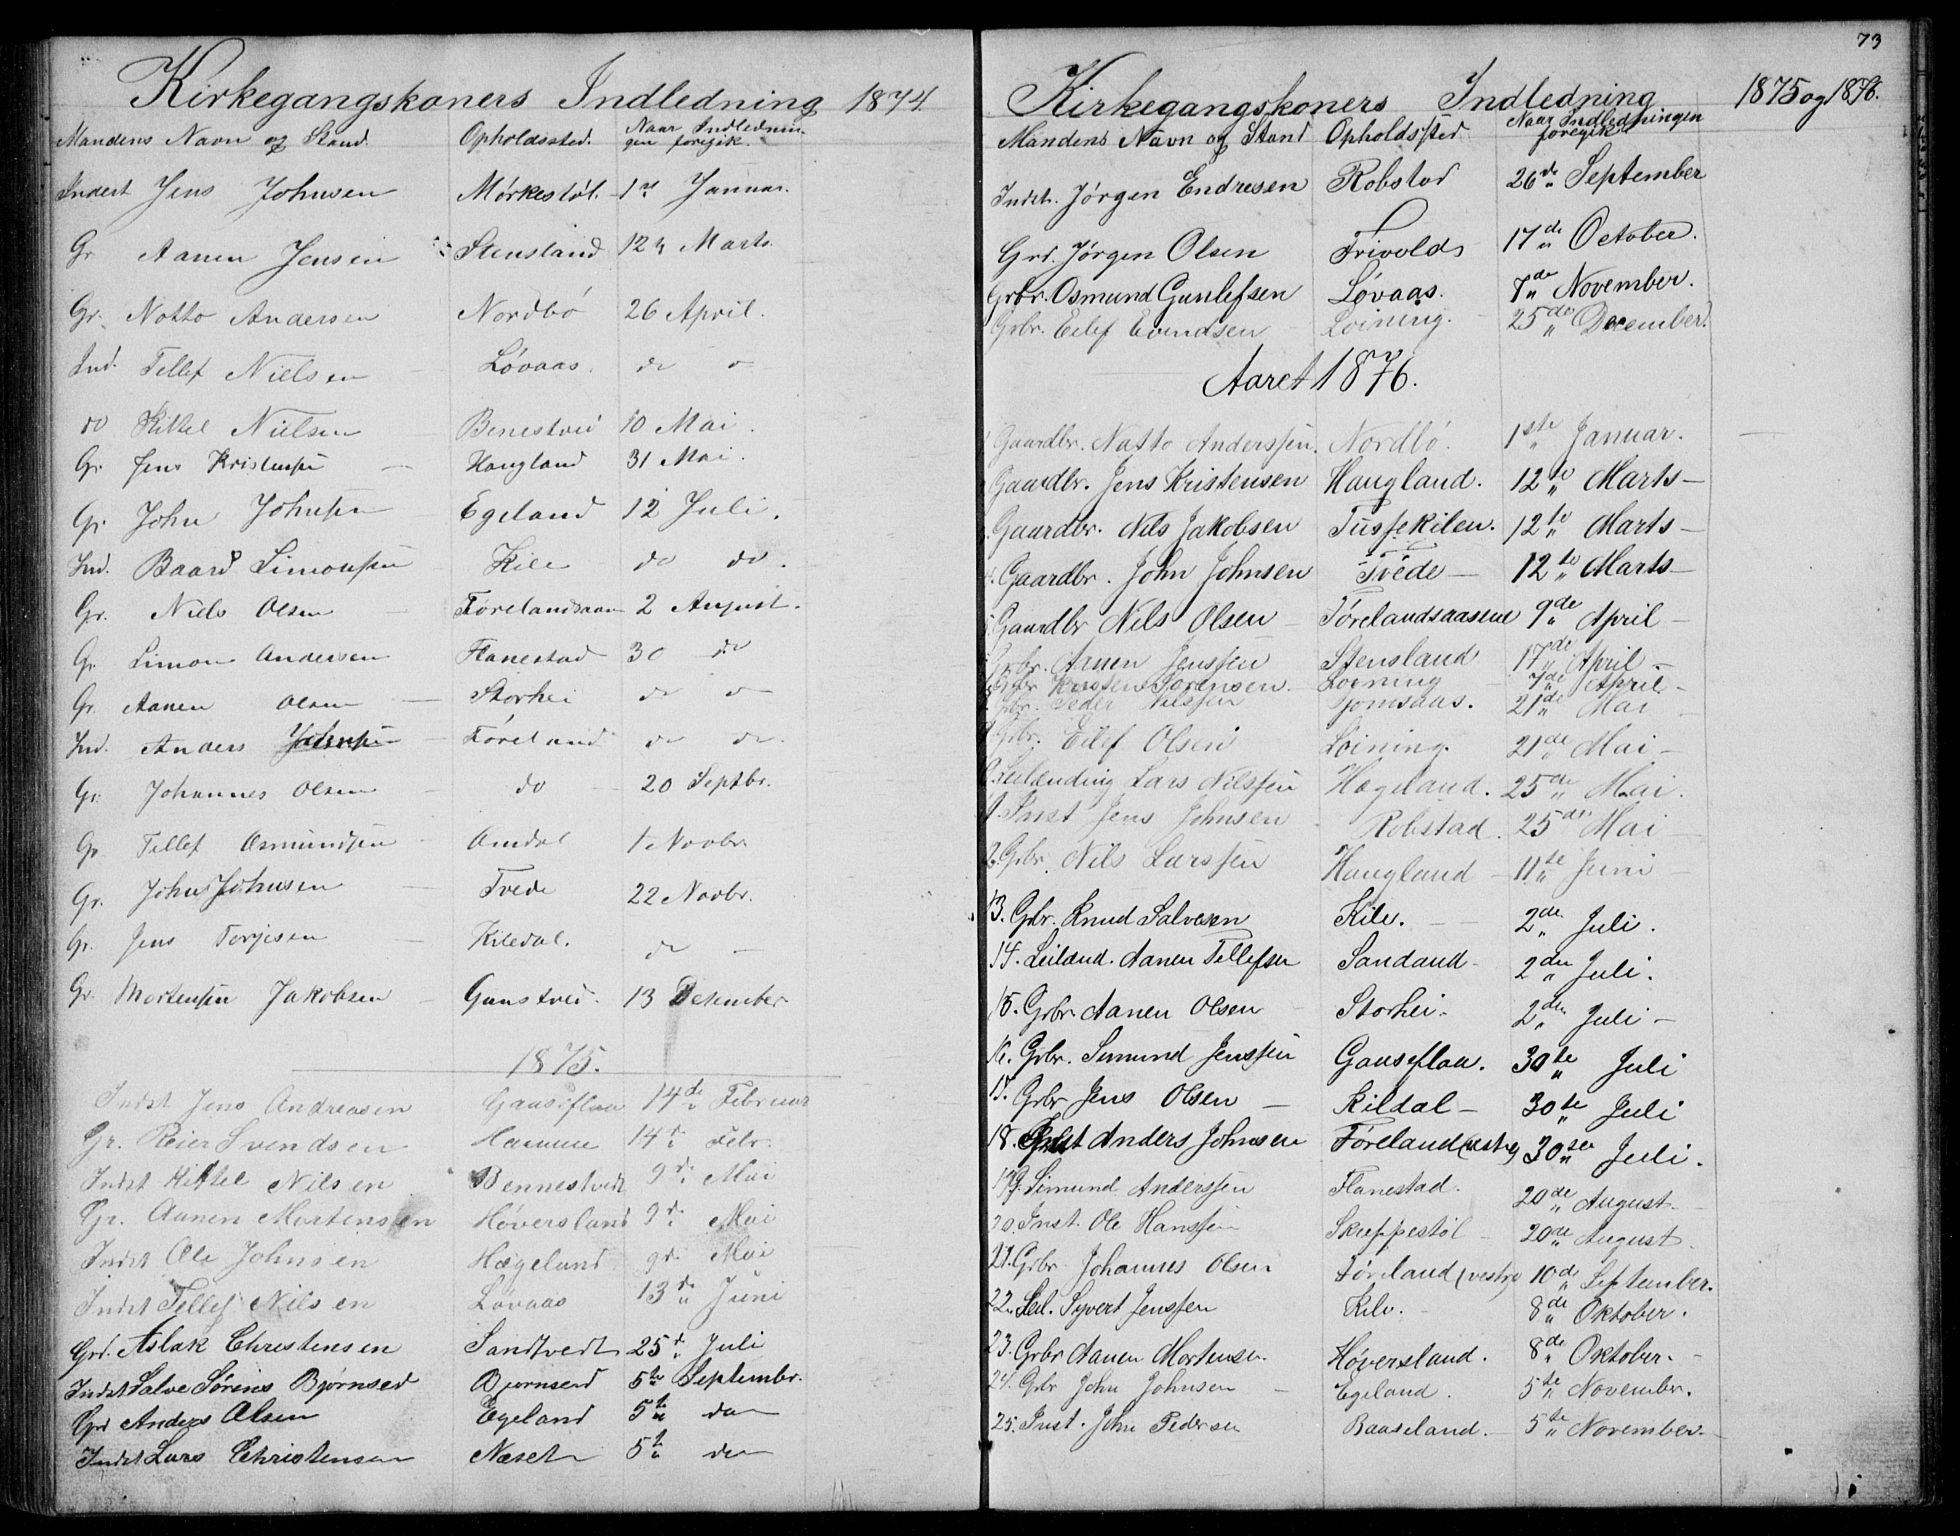 Kirkegangskoners Indledning 1874
Mandens Navn og Stand. Opholdssted. Naar Indlednin-
gen foregik.
Inderst Jens Johnsen Mørkestøl. 1ste Januar.
Gr Aanen Jensen Stensland 12 Marts.
Gr. Notto Andersen Nordbø 26 April.
Ind. Tellef Nielsen Løvaas. do o
do Kittel Nielsen Benestved 10 Mai.
Gr. Jens Kristensen Haugland 31 Mai.
Gr. John Johnsen Egeland 12 Juli.
Ind. Baard Simonsen Kile do do.
Gr. Niels Olsen Førelandsaasen 2 August.
Gr. Simon Andersen Flanestad 30 do
Gr. Aanen Olsen Storhei do o
Ind. Anders Johnsen Føreland do do.
Gr. Johannes Olsen do 20 Septbr.
Gr Tellef Osmundsen Omdal 1ste Novbr.
Gr. John Johnsen Tvede 22 Novbr.
Gr. Jens Torjesen Kiledal. do
Gr. Mortensen Jakobsen Gunstved. 13 Desember
1875.
Indst Jens Andreasen Gaaseflaa 14de Februar
Gr. Reier Svendsen Hamme 14de Febr.
Indst Kittel Nilsen Bennestvedt 9de Mai
Gr. Aanen Mortensen Høversland 9de Mai
Indst Ole Johnsen Hægeland 9de Mai
Indst Tellef Nilsen Løvaas 13de Juni
Grd. Aslak Christensen Sandtvedt 25de Juli
Indst Salve Sørens Bjørnsed Bjørnsend 5te Septembr.
Grd Anders Olsen Egeland 5te do
Indst Lars Christensen Næset 5te do
73
Kirkegangskoners Indledning 1875 og 1876.
Mandens Navn og Stand Opholdssted Naar Indledningen
foregik
Indst. Jørgen Endresen Robstad 26de September
Grd. Jørgen Olsen Frivolds 17de October.
Grbr. Osmund Gunlefsen Løvaas. 7de November.
Grbr. Eilef Evendsen Loining. 25de December.
Aaret 1876.
Gaardbr. Notto Anderssen. Nordbø. 1ste Januar.
Gaardbr. Jens Kristensen Haugland. 12te Marts
Gaardbr. Nils Jakobsen Tussekilen. 12te Marts
Gaardbr. John Johnsen Tvede 12te Marts
Gaardbr Nils OlsenFørelandsaasene 9de April
Grbr. Aanen Jenssen Stensland 17de April
Grbr Kristen Sørensen. Loining 7de April
Grbr. Peder Nilssen Gjomsaas. 21de Mai
Grbr. Eilef Olsen Loining. 21de Mai
Leilænding Lars Nilssen Hægeland. 25de Mai.
Inst Jens Johnsen Robstad. 25de Mai
Grbr. Nils Larssen Haugland 11te Juni
13. Grbr. Knud Salvesen Kile. 2den Juli.
14. Leilænd. Aanen Tellefsen Sandand 2den Juli.
15. Grbr. Aanen Olsen Storhei. 2den Juli
16. Grbr. Simund Jenssen Gaaseflaa. 30te Juli
17. Grbr Jens Olsen Kildal 30te Juli
18. Inst Anders Johnsen Føreland (vestre) 30te Juli.
19. Simund Anderssen Flanestad. 20de August.
20. Inst. Ole Hanssen Skreppestøl 20de August
21. Grbr. Johannes Olsen Føreland (vestre) 10de September.
22. Leil. Syvert Jenssen Kile. 8de Oktober.
23. Grbr Aanen Mortensen Høversland. 8de Oktober.
24. Grbr John Johnsen Egeland. 5te November.
25. Inst. John Pedersen Baaseland. 5te November.